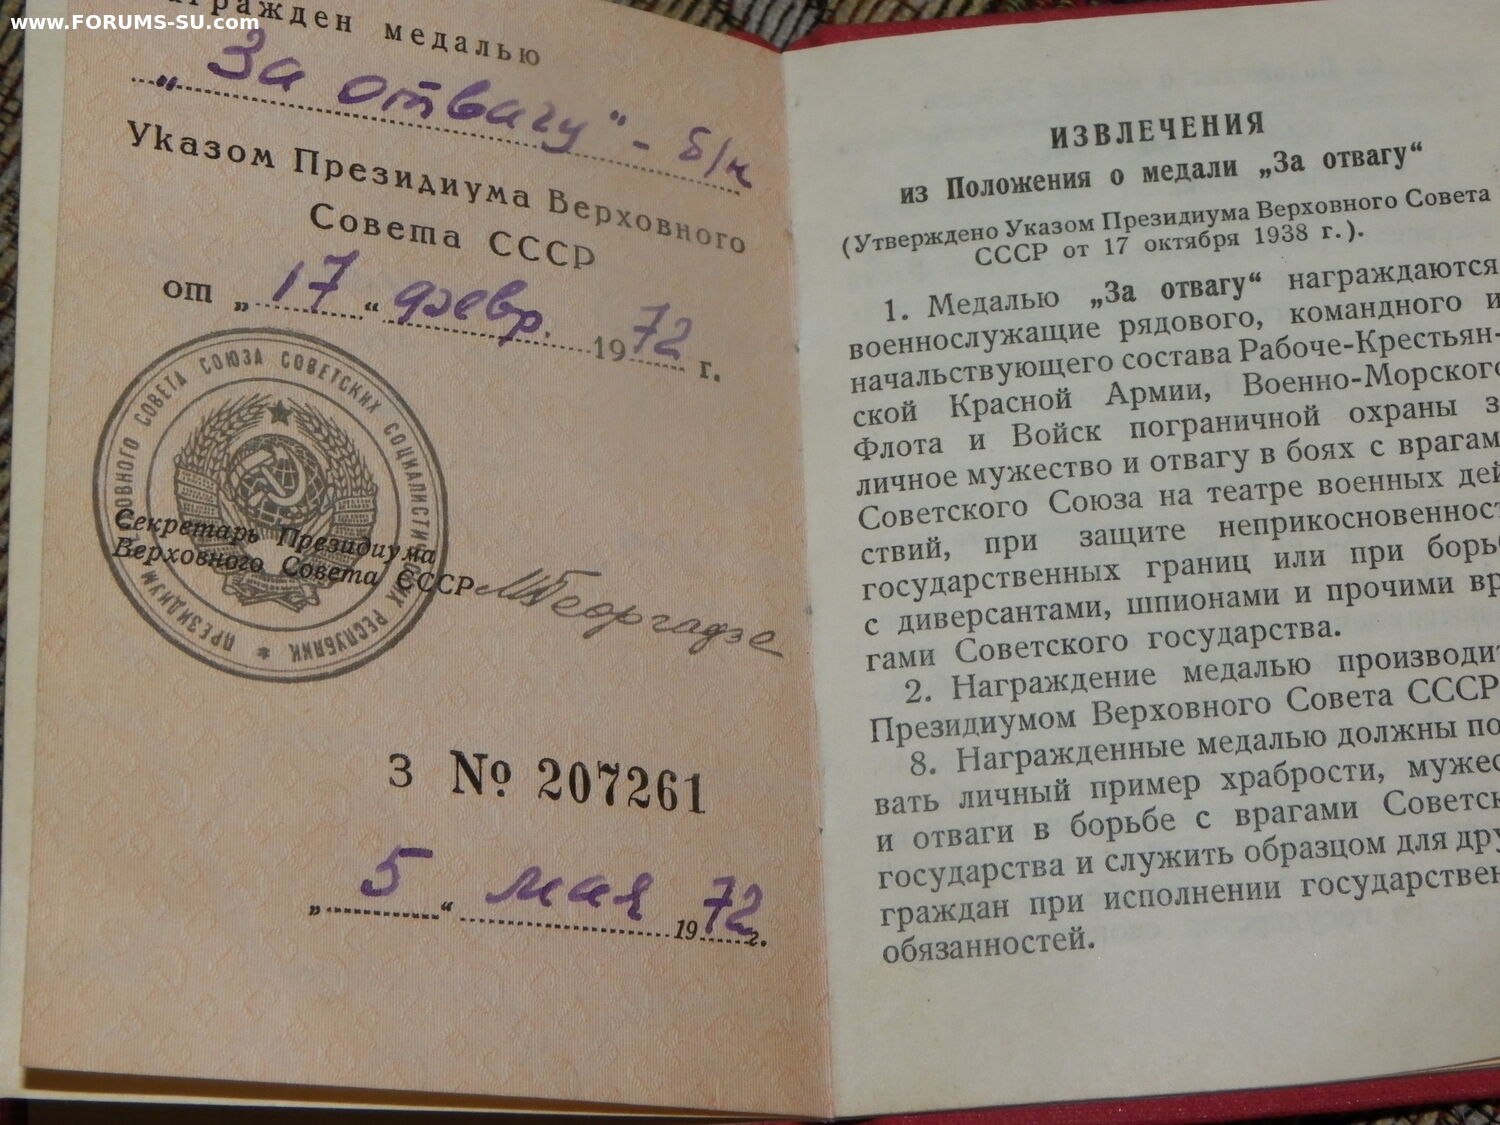 www.FORUMS-SU.com
награжден медалью
„За отвагу“ - б/н
Указом Президиума Верховного
Совета СССР
от „17“ февр. 1972 г.
ПРЕЗИДИУМ ВЕРХОВНОГО СОВЕТА СОЮЗА СОВЕТСКИХ СОЦИАЛИСТИЧЕСКИХ РЕСПУБЛИК *
Секретарь Президиума
Верховного Совета СССР МГеоргадзе
З № 207261
„5“ мая 1972 г.
ИЗВЛЕЧЕНИЯ
из Положения о медали „За отвагу“
(Утверждено Указом Президиума Верховного Совета
СССР от 17 октября 1938 г.).
1. Медалью „За отвагу“ награждаются
военнослужащие рядового, командного и
начальствующего состава Рабоче-Крестьян-
ской Красной Армии, Военно-Морского
Флота и Войск пограничной охраны з
личное мужество и отвагу в боях с врагам
Советского Союза на театре военных дей
ствий, при защите неприкосновенност
государственных границ или при борьб
с диверсантами, шпионами и прочими вр
гами Советского государства.
2. Награждение медалью производит
Президиумом Верховного Совета СССР
8. Награжденные медалью должны по
вать личный пример храбрости, мужес
и отваги в борьбе с врагами Советск
государства и служить образцом для дру
граждан при исполнении государствен
обязанностей.